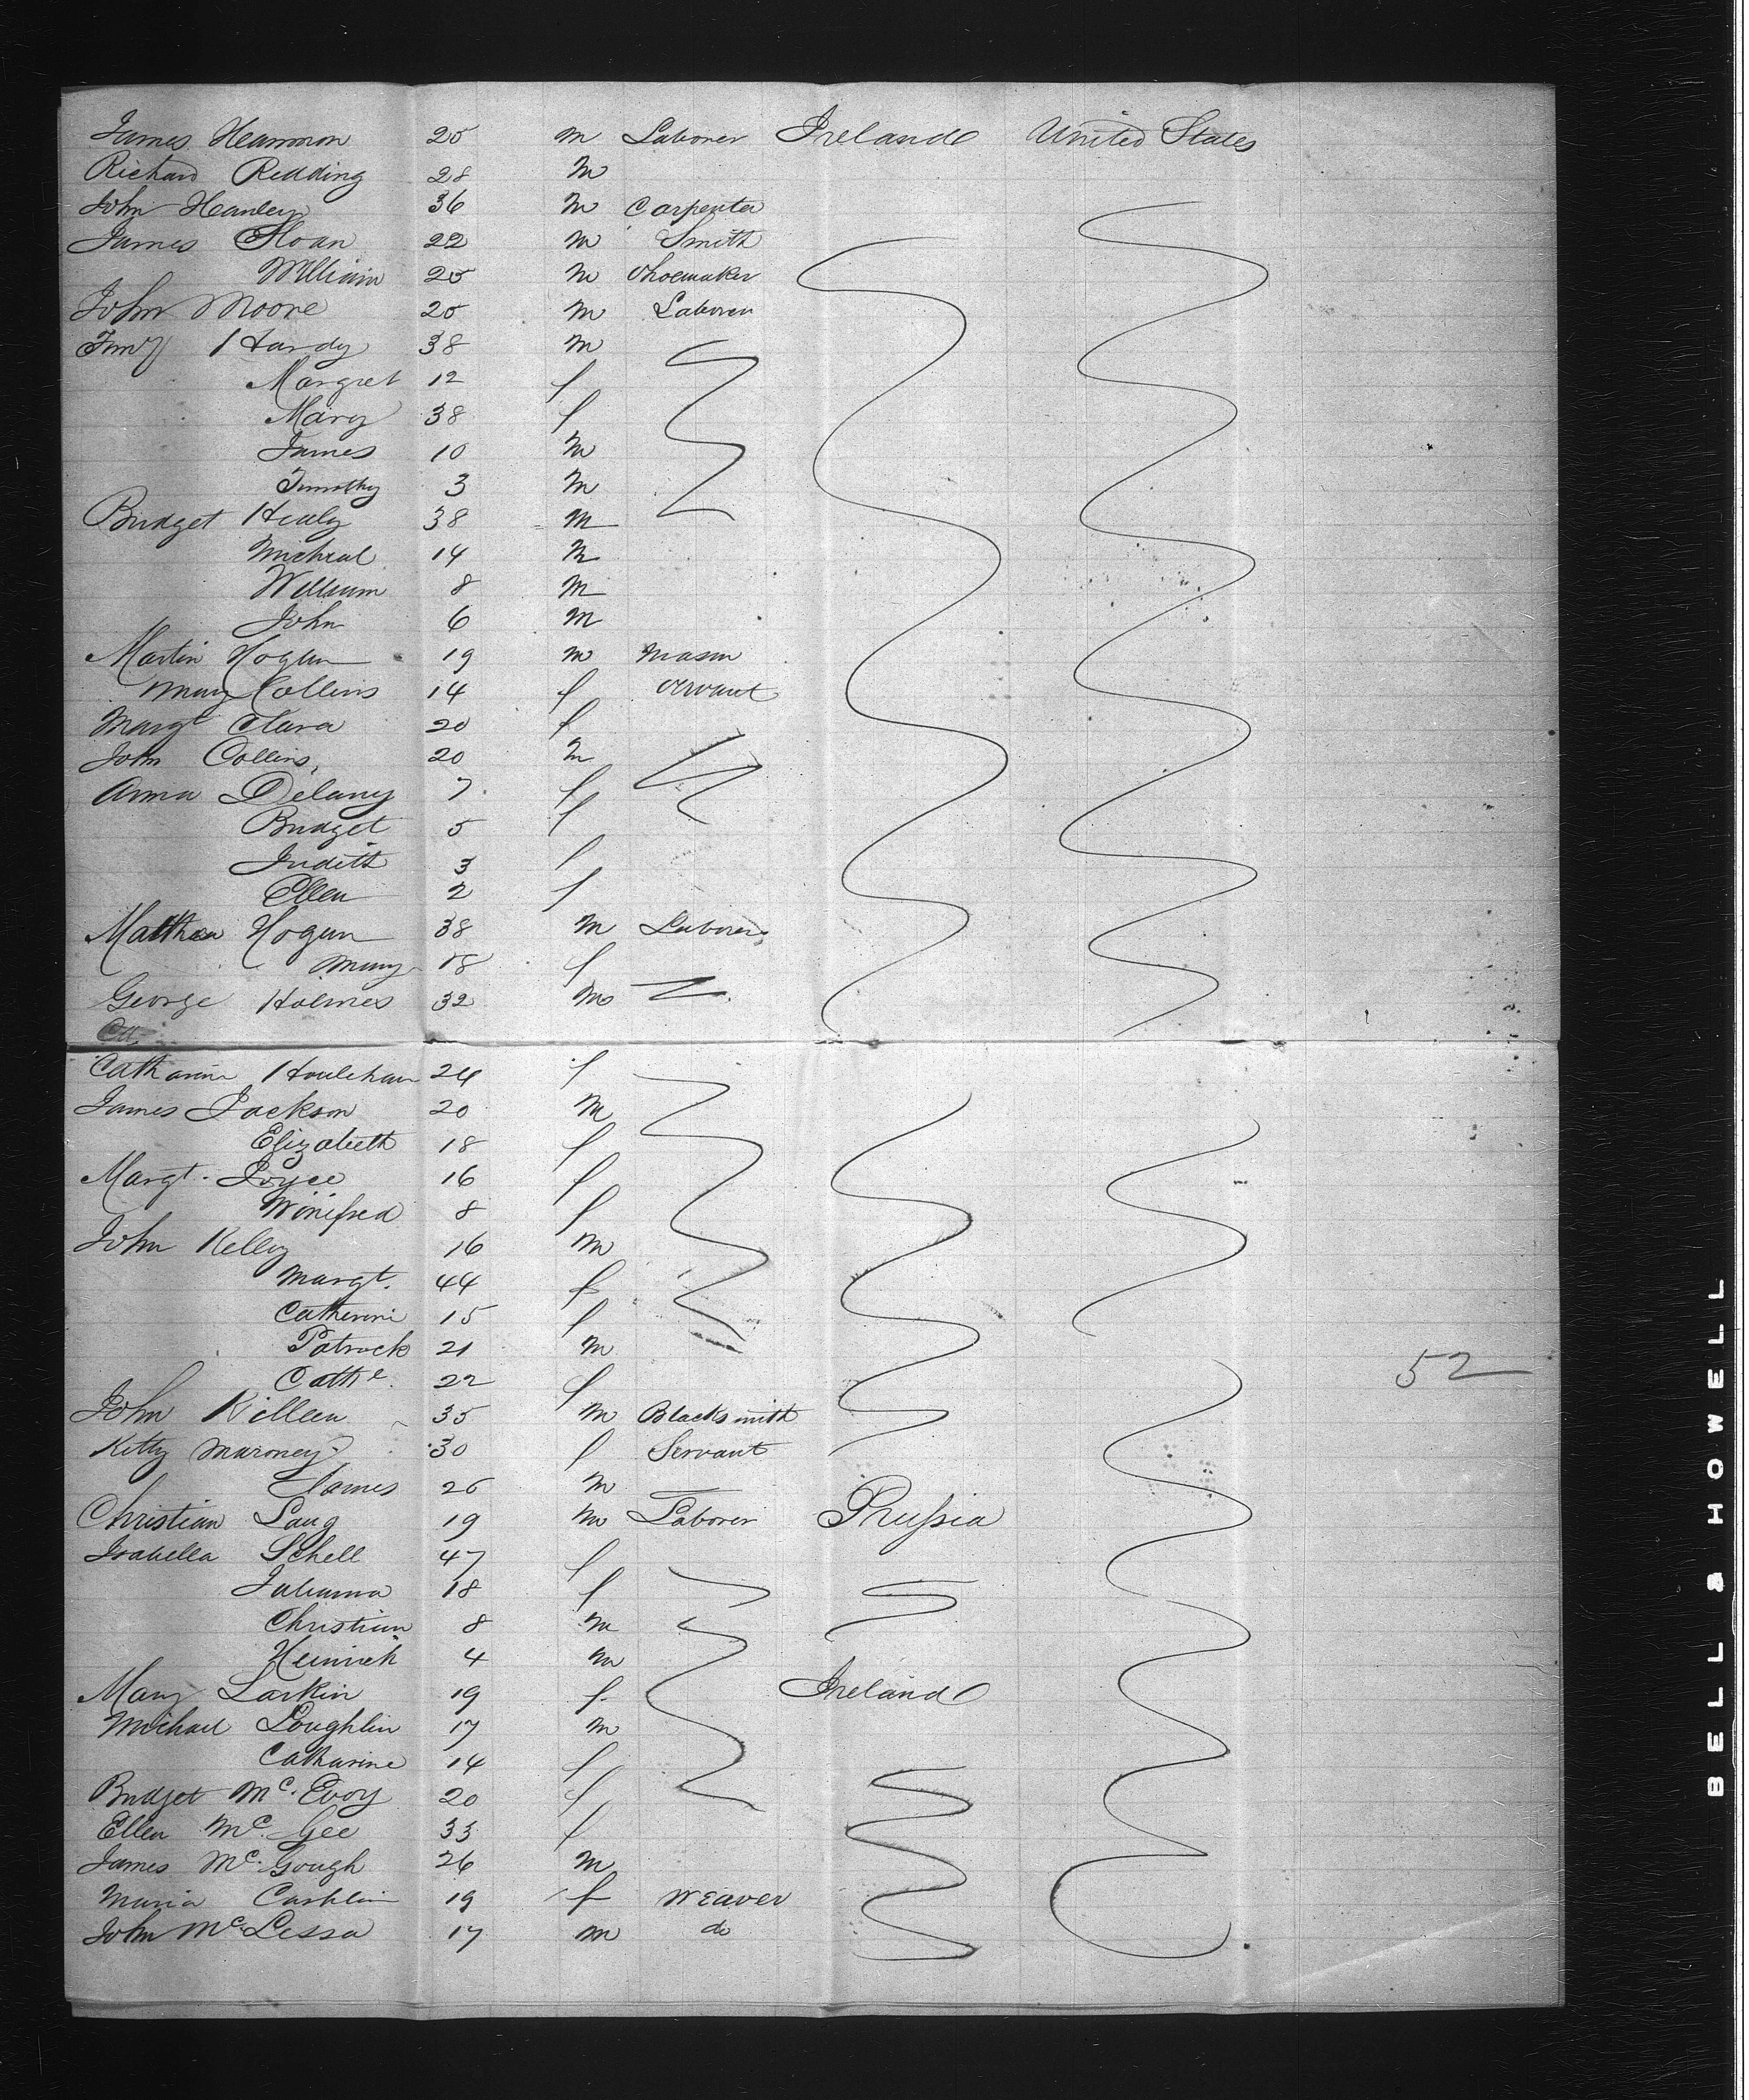 James Heamnon 25 m Laborer Ireland United States
Richard Redding 28 m
John Hanley 36 m Carpenter
James Sloan 22 m Smith
William 25 m Shoemaker
John Moore 25 m Laborer
Timy Hardy 38 m
Margret 12 f
Mary 38 f
James 10 m
Timothy 3 m
Bridget Healy 38 m
Micheal 14 m
William 8 m
John 6 m
Martin Hogan 19 m Mason
Mary Collins 14 f Servant
Margt Clara 20 f
John Collins 20 m
Anna Delany 7 f
Bridget 5 f
Judith 3 f
Ellen 2 f
Matthew Hogan 38 m Laborer
Mary 18 f
George Holmes 32 m
Catharine Houlehan 24 f
James Jackson 20 m
Elizabeth 18 f
Margt. Joyce 16 f
Winifred 8 f
John Kelly 16 m
Margt. 44 f
Catherine 15 f
Patrick 21 m
Cathe. 22 f
52
John Killeen 35 m Blacksmith
Kitty Maroney 30 f Servant
James 26 m
Christian Laug 19 m Laborer Prussia
Isabella Schell 47 f
Julianna 18 f
Christian 8 m
Heinrich 4 m
Mary Larkin 19 f Ireland
Michael Loughlin 17 m
Catharine 14 f
Bridget Mc. Evoy 20 f
Ellen Mc. Gee 33 f
James Mc. Gough 26 m
Maria Cashlin 19 f Weaver
John Mc. Lessa 17 m do
BELL & HOWELL